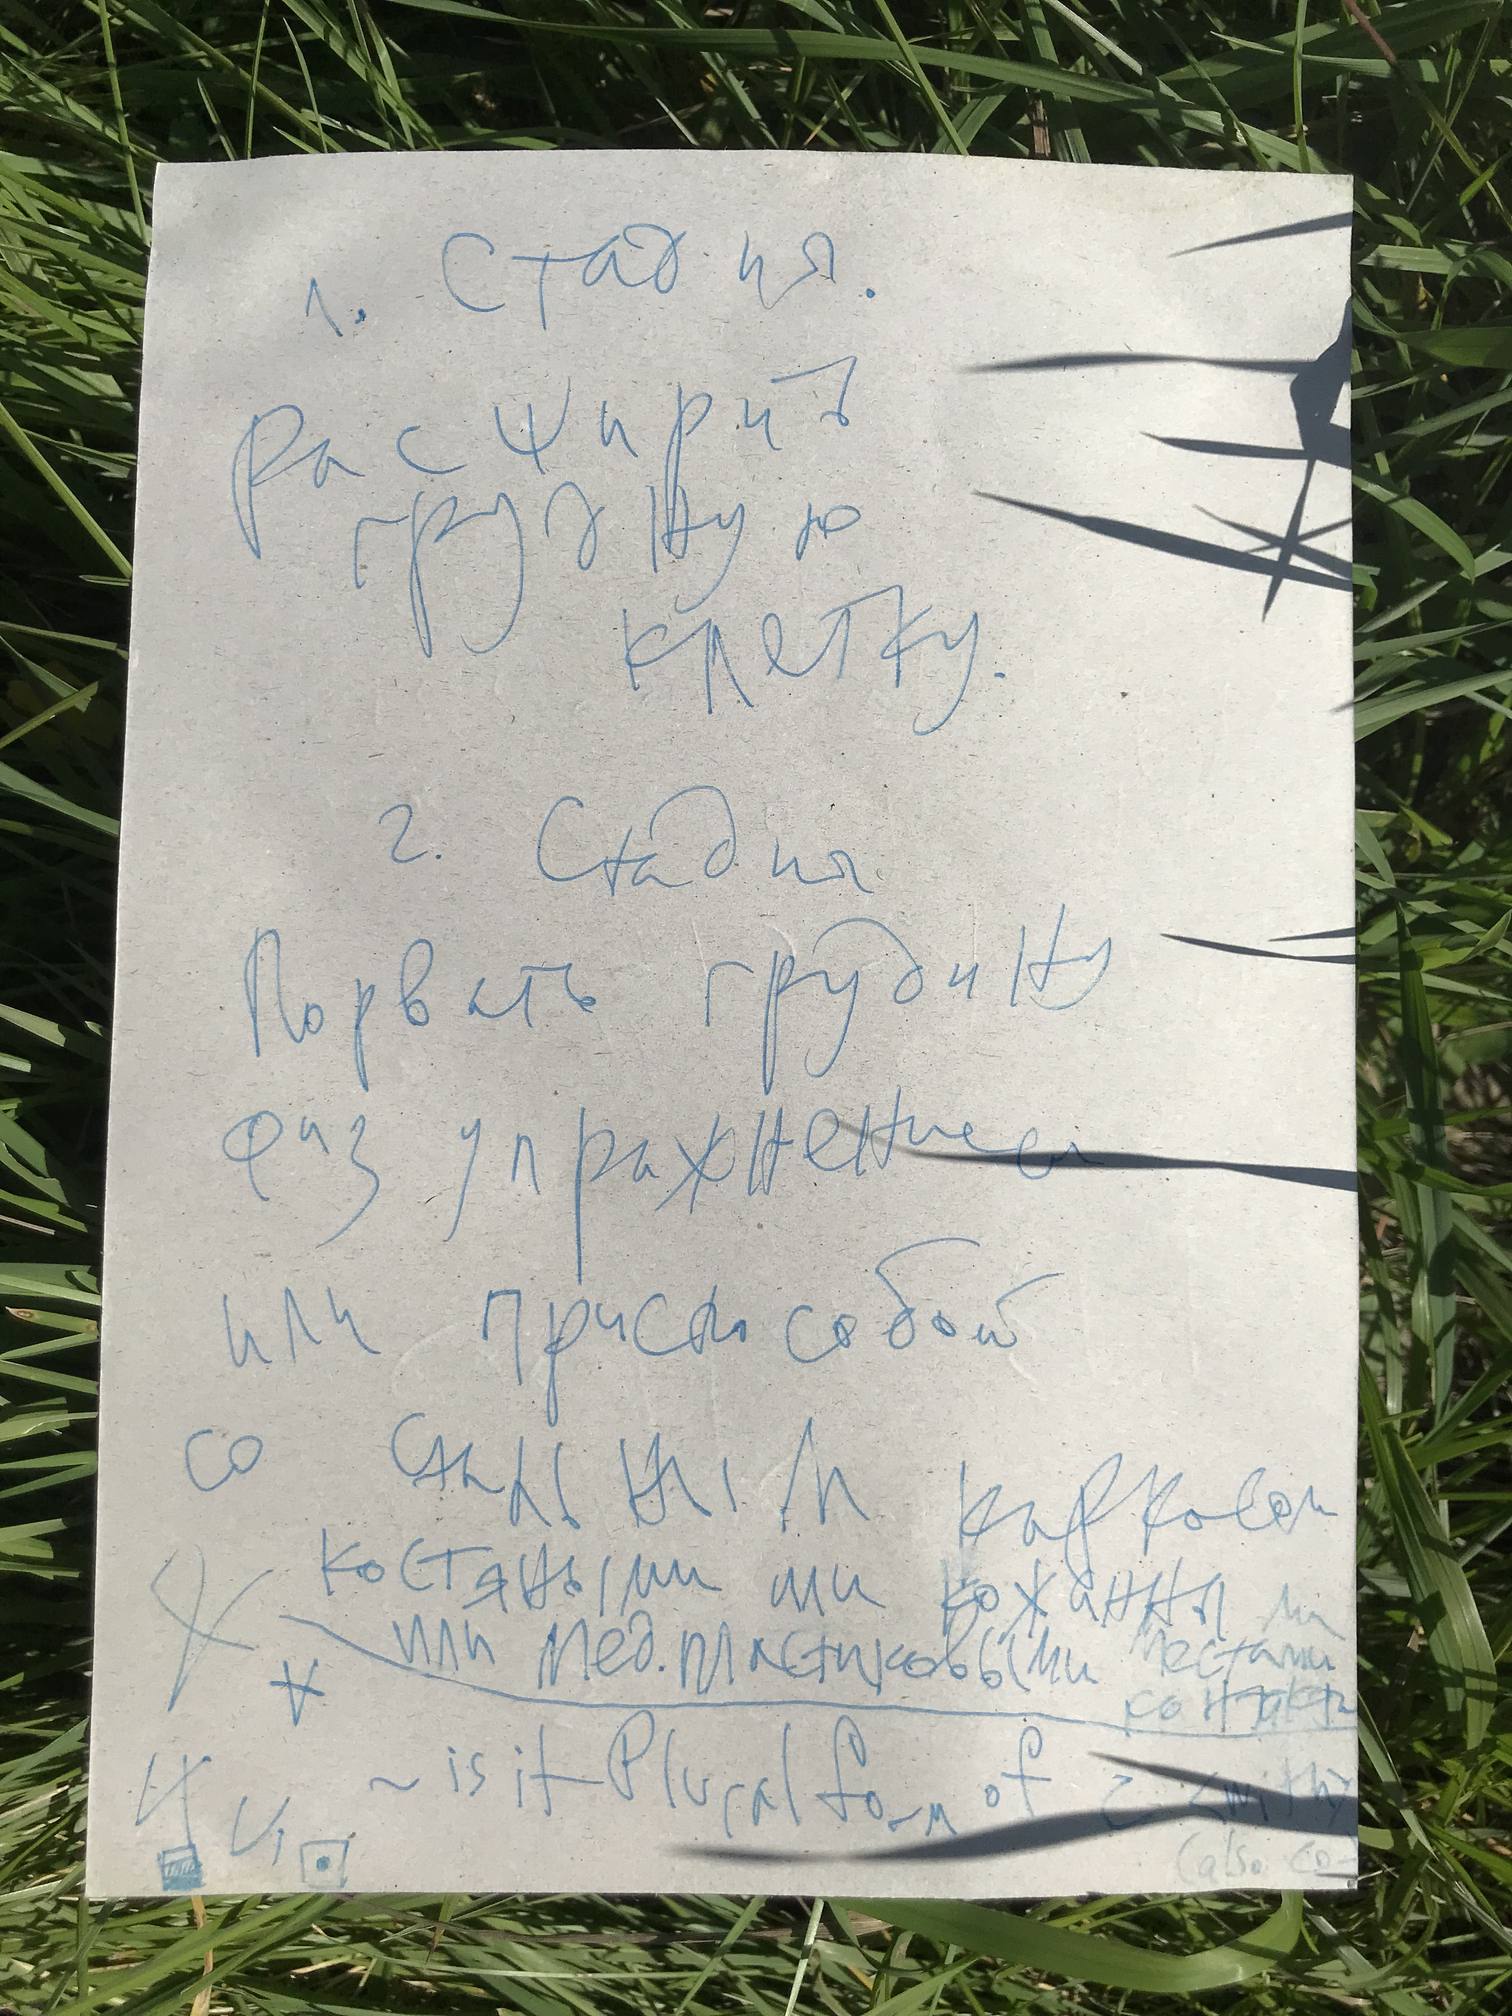 1. Стадия.
Расширить
грудную
клетку.
2. Стадия
Порвать грудину
физ упражнением
или приспособой
со стальным каркасом
костяными или кожанными
или мед.пластиковыми местами
контакта
~ is it Plural form of с <with>
(also co-